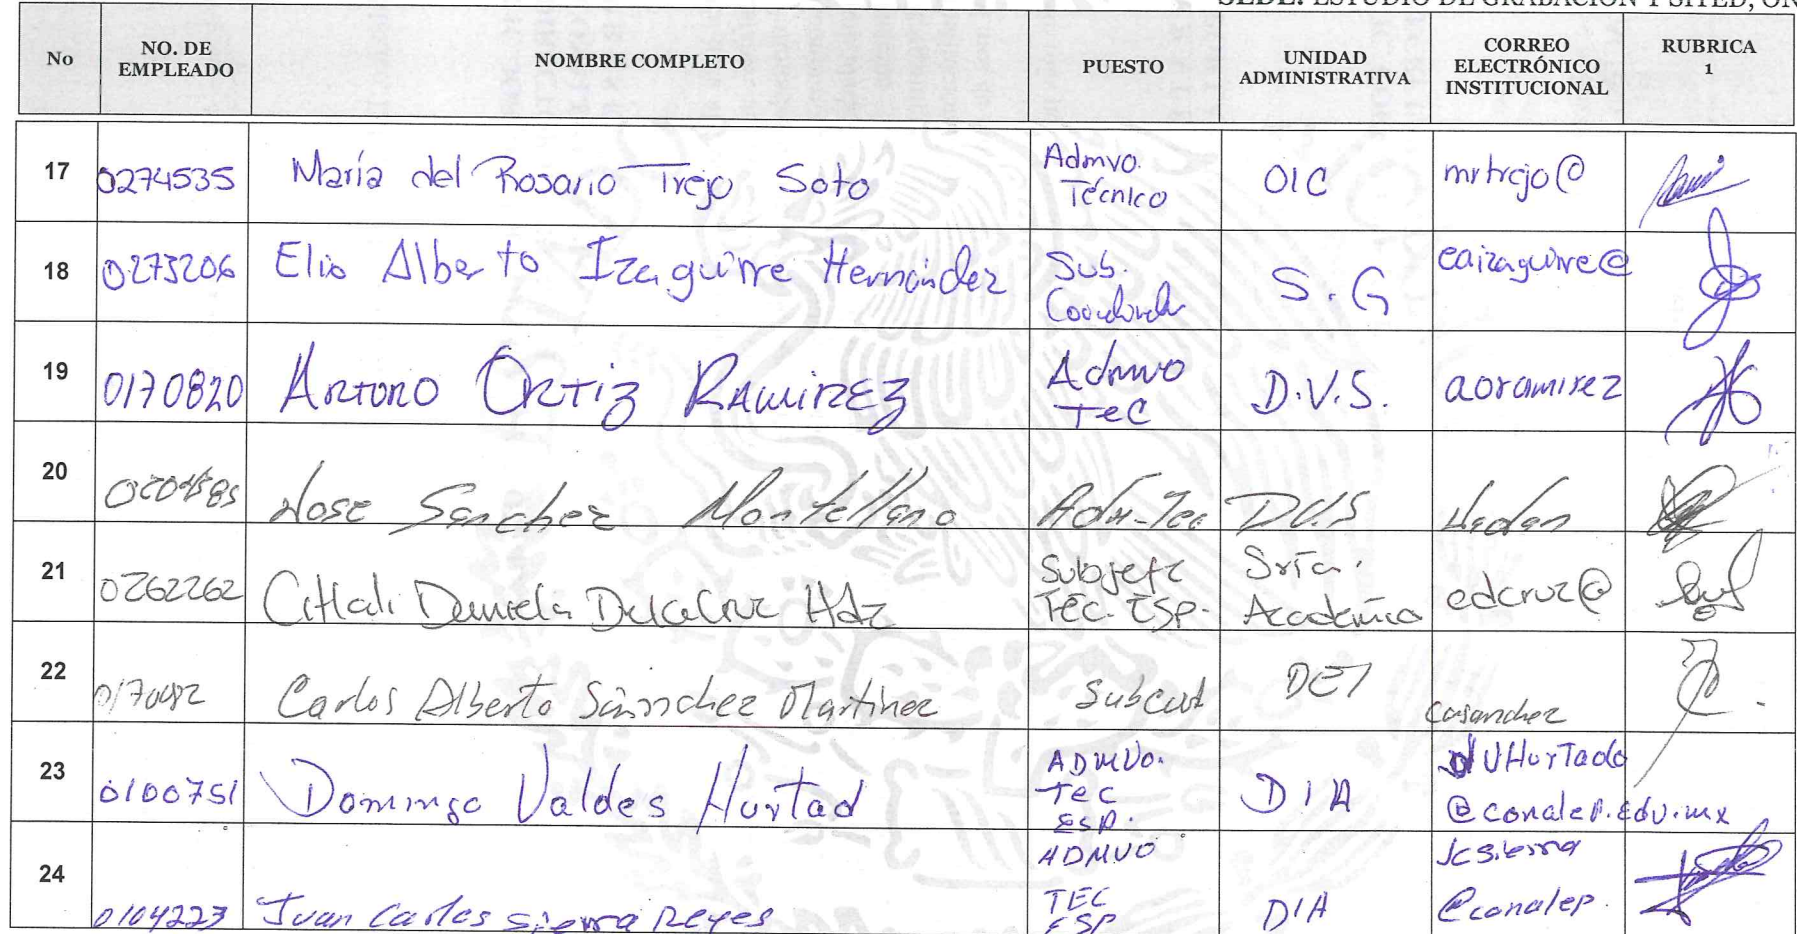 SEDE: ESTUDIO DE GRABACIÓN Y SITED, ON
No NO. DE EMPLEADO NOMBRE COMPLETO PUESTO UNIDAD ADMINISTRATIVA CORREO ELECTRÓNICO INSTITUCIONAL RUBRICA 1
17 0274535 María del Rosario Trejo Soto Admvo. Técnico OIC mrtrejo@
18 0273206 Elio Alberto Izaguirre Hernández Sub. S.G eaizaguirre@
19 0170820 ARTURO ORTIZ RAMIREZ Admvo Tec D.V.S. aoramirez
20 Jose Sanchez Montellano Adm-Tec D.V.S
21 0262262 Citlali Daniela DelaCruz Hdz Subjefe Tec. Esp. Sría. Académica edcruz@
22 Carlos Alberto Sánchez Martinez casanchez
23 0100751 Domingo Valdes Hurtad ADMVO. Tec ESP. DIA dVHurtado @conalep.edu.mx
24 0104223 Juan Carlos Sierra Reyes ADMVO TEC ESP DIA Jcsierra @conalep.